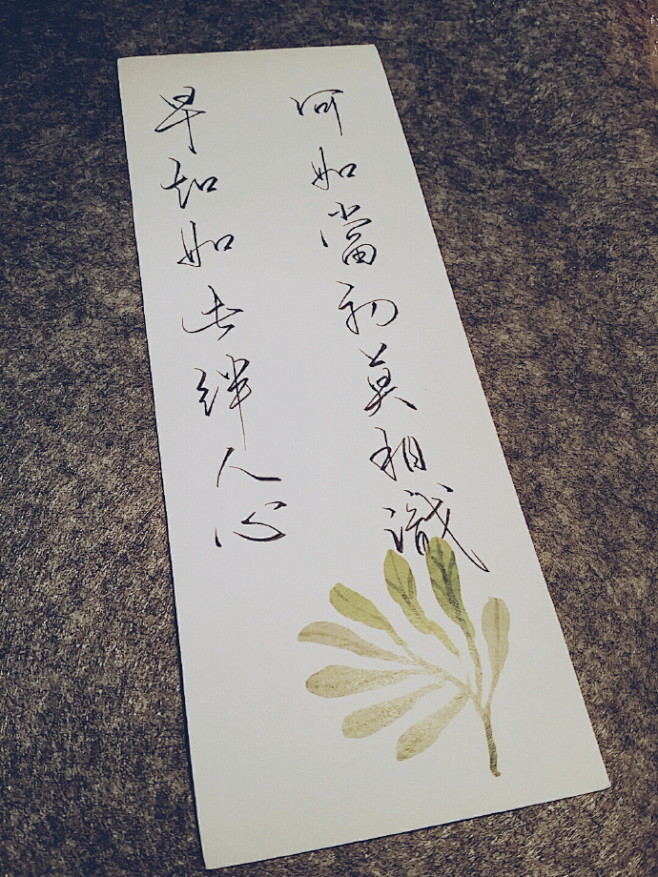 早知如此絆人心
何如當初莫相識